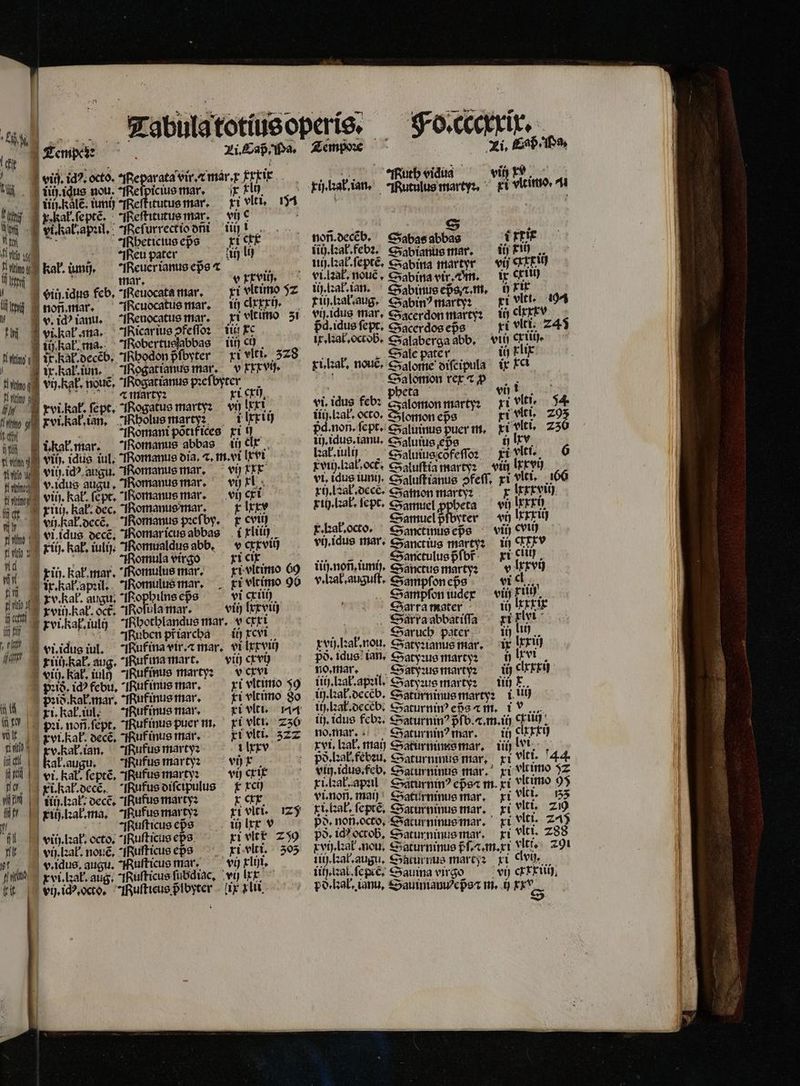 Tabula totius operis. Fo.ccccxix.
Tempore Li.Cap.Pa.
viij. id9. octo. Reparata vir.⁊ mar. x xxxix
iiij.idus nou. Respicius mar. ix xlij
iiij.kalē. iunij Restitutus mar. xi vlti.
x.kal.septē. Restitutus mar. vij c
vi.kal.apzil. Resurrectio dñi iiij i
Rheticius eps xi cxx
Reu pater iij lij
kal. iunij. Reuerianus eps ⁊
mar. v xxviij.
viij.idus feb. Reuocata mar. xi vltimo 52
noñ.mar. Reuocatus mar. iij clxxxij.
v. id9 ianu. Reuocatus mar. xi vltimo 31
vi.kal.ma. Ricarius ɔfessoz iiij xc
iij.kal.ma. Robertus abbas iiij cij
ix.kal.decēb. Rhodon pszbyter xi vlti. 328
ix.kal.iun. Rogatianus mar. v xxxvij.
vij.kal. nouē. Rogatianus pzesbyter
⁊ martyz xi cxij
xvi.kal. sept. Rogatus martyz vij lxxi
xvi.kal.ian. Rholus martyz i lxxiij
Romani pōtifices xi ij
i.kal.mar. Romanus abbas iij clx
viij. idus iul. Romanus dia. ⁊.m. vi lxvi
viij.id9. augu. Romanus mar. vij xxx
v.idus augu. Romanus mar. vij xl
viij. kal. sept. Romanus mar. vij cxi
xiij. kal. dec. Romanus mar. x lxxv
vij.kal.decē. Romanus pzesby. x cviij
vi.idus decē. Romaricus abbas i xliiij
xij. kal. iulij. Romualdus abb. v cxxviij
Romula virgo xi cix
xij. kal.mar. Romulus mar. xi vltimo 69
ix.kal.apzil. Romulus mar. xi vltimo 96
xv.kal. augu. Rophilus eps vi cxiiij
xviij.kal. oct. Rosula mar. viij lxxviij
xvi.kal.iulij Rhothlandus mar. v cxxi
Ruben pr̄iarcha iij xcvi
vi.idus iul. Rufina vir.⁊ mar. vi lxxviij
xiiij.kal. aug. Rufina mart. viij cxvij
viij. kal. iulij Rufinus martyz v cxvi
pzid. id9 febu. Rufinus mar. xi vltimo 59
pzid.kal.mar. Rufinus mar. xi vltimo 80
xi. kal.iul. Rufinus mar. xi vlti. 144
pzi. noñ.sept. Rufinus puer m. xi vlti. 236
xvi.kal. decē. Rufinus mar. xi vlti. 322
xv.kal.ian. Rufus martyz i lxxv
kal.augu. Rufus martyz vij x
vi. kal. septē. Rufus martyz vij cxix
xi.kal.decē. Rufus discipulus x xcij
iiij.kal. decē. Rufus martyz x cxx
xij.kal.ma. Rufus martyz xi vlti. 125
Rusticus eps iij lxx v
viij.kal. octo. Rusticus eps xi vlti 259
vij.kal. nouē. Rusticus eps xi vlti. 303
v.idus. augu. Rusticus mar. vij xliij.
xvi.kal. aug. Rusticus subdiac. vij lxx
vij.id9.octo. Rusticus pszbyter ix xlii
Tempore Li. Cap. Pa.
Ruth vidua viij xv
xij.kal.ian. Rutulus martyz. xi vltimo.
S
noñ.decēb. Sabas abbas i xxix
iiij.kal.febz. Sabianus mar. iij xiij
iiij.kal.septē. Sabina martyr vij cxxxiij
vi.kal. nouē. Sabina vir.⁊m. ix cxiiij
iij.kal.ian. Sabinus eps.⁊.m. ij xix
xiij.kal.aug. Sabin9 martyz xi vlti. 194
vij.idus mar. Sacerdon martyz iij clxxxv
pd.idus sept. Sacerdos eps xi vlti. 245
ix.kal.octob. Salaberga abb. viij cxiij.
Sale pater iij xlix
xi.kal. nouē. Salome discipula ix xci
Salomon rex ⁊ p
pheta vij i
vi. idus febz Salomon martyz xi vlti. 54
iiij.kal. octo. Slomon eps xi vlti. 295
pd.non. sept. Saluinus puer m. xi vlti. 236
iij.idus.ianu. Saluius eps ij lxv
kal.iulij Saluius cōfessoz xi vlti. 6
xviij.kal.oct. Salustia martyz viij lxxvij
vi. idus iunij. Salustianus ɔfess. xi vlti. 166
xij.kal.decē. Samon martyz x lxxxviij
xiij.kal. sept. Samuel ppheta vij lxxxij
Samuel pszbyter vij lxxxiij
x.kal.octo. Sanctinus eps viij cviij
vij.idus mar. Sanctius martyz iij cxxxv
Sanctulus pszbr xi ciij
iiij.noñ.iunij. Sanctus martyz v lxxvij
v.kal.august. Sampson eps vi cl
Sampson iudex viij xiiij
Sarra mater iij lxxxix
Sarra abbatissa xi xlvi
Saruch pater iij lij
xvij.kal.nou. Satyzianus mar. ix lxxiij
pd. idus ian. Satyzus martyz ij lxvi
no.mar. Satyzus martyz iij clxxxij
iiij.kal.apzil. Satyzus martyz iiij x
iij.kal.decēb. Saturninus martyz i iiij
iij.kal.decēb. Saturnin9 eps ⁊ m. i v
iij. idus febz. Saturnin9 psb.⁊.m. iij cxiiij
no.mar. Saturnin9 mar. iij clxxxij
xvi. kal. maij Saturninus mar. iiij lvi
pd.kal.febzu. Saturninus mar. xi vlti. 44
viij.idus.feb. Saturninus mar. xi vltimo 52
xi.kal.apzil Saturnin9 eps⁊ m. xi vltimo 95
vi.non. maij Saturninus mar. xi vlti. 133
xi.kal. septē. Saturninus mar. xi vlti. 219
pd. noñ.octo. Saturninus mar. xi vlti. 245
pd. id9 octob. Saturninus mar. xi vlti. 288
xvij.kal.nou. Saturninus ps.⁊.m. xi vlti. 291
iiij.kal.augu. Saturnus martyz xi clvij.
iiij.kal.septē. Sauina virgo vij cxxxiiij.
pd.kal. ianu. Sauinian9 eps⁊ m. ij xxv
S